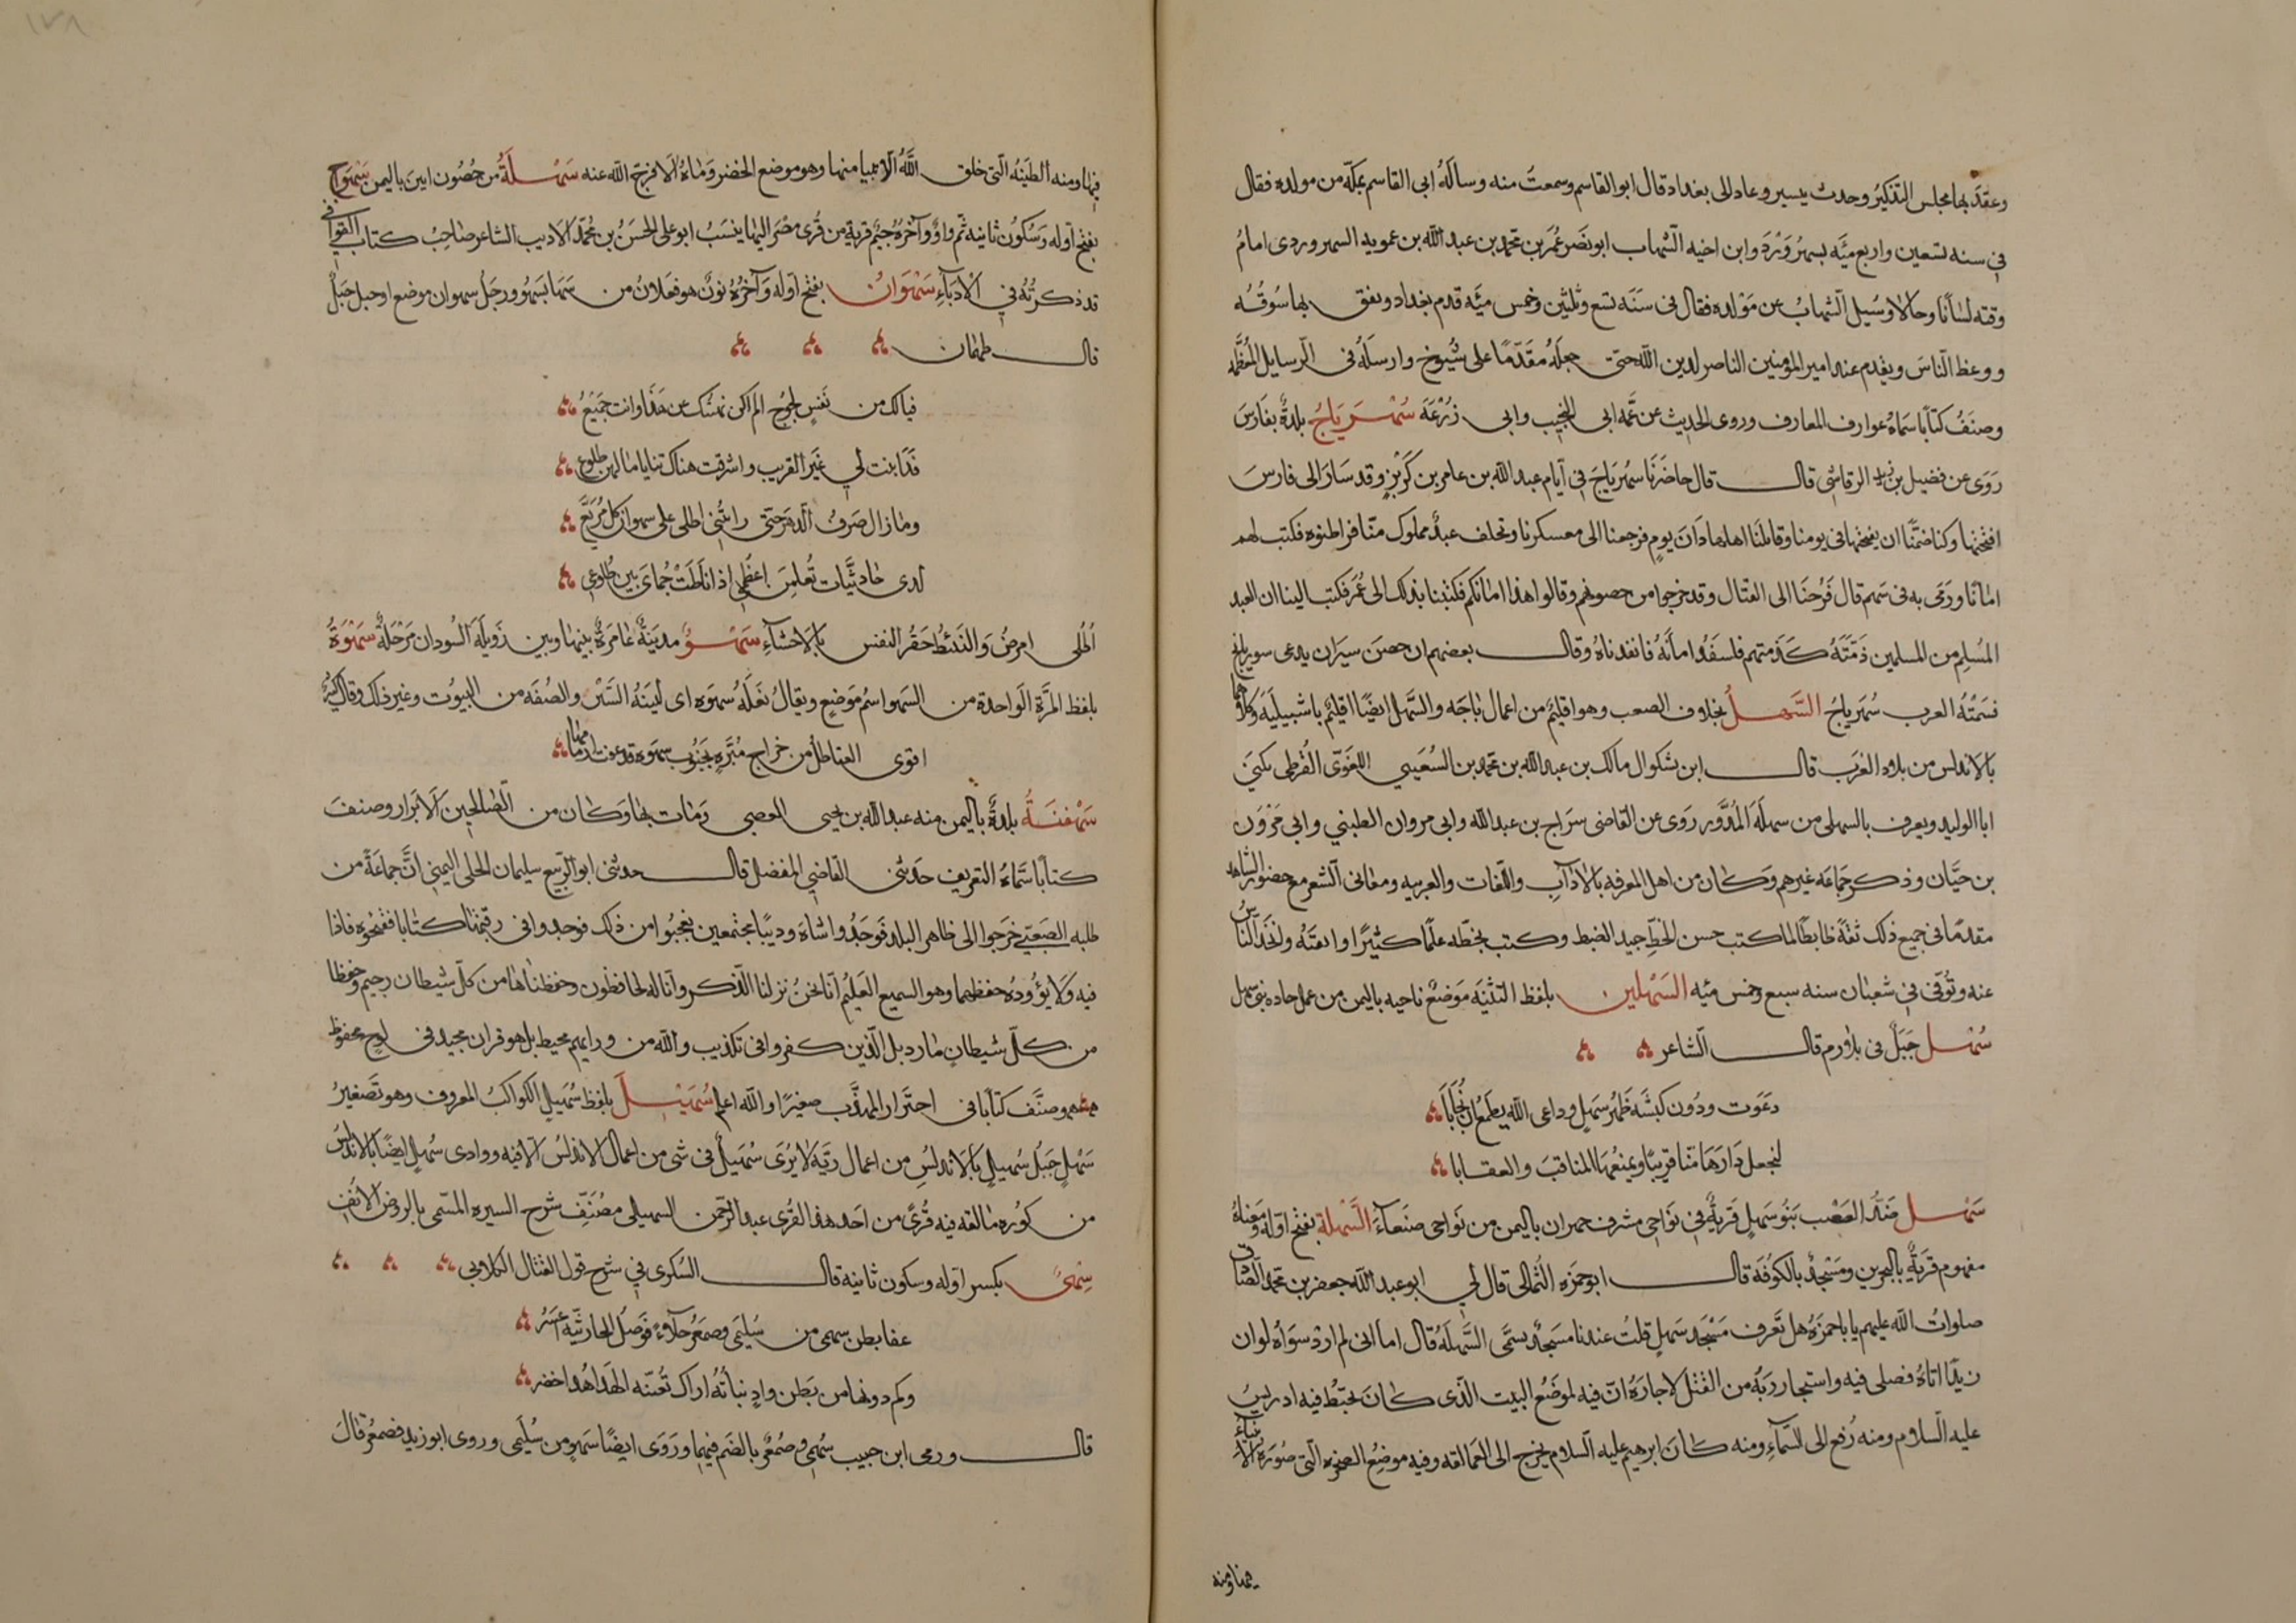 وعقد بها مجلس التذكير وحدث يسير وعاد الى بغداد قال ابو القاسم وسمعت منه وسالهُ ابى القاسم بمكّة من مولده فقال
فى سنه تسعين واربع ميّه بسهرُوَرْدَ وابن اخيه الشهاب ابو نصر عُمَر بن محمد بن عبد الله بن عمويه السهروردى امامُ
وقته لسانًا وحالا وسُيل الشهابُ عن مَوْلده فقال فى سَنَه تسع وثلثين وخمس ميّه قدم بغداد ونفق بها سُوقُه
ووعظ الناسَ وتقدم عند امير المؤمنين الناصر لدين الله حتى جعلهُ مقدّمًا على شيُوخ وارسلهُ فى الرسايل المُعظّمه
وصنفُ كتابًا سماهُ عوارف المعارف وروى الحديث عن عمّه ابى النجيب وابى زُرْعَه سُهْرِيَاجُ بلدةٌ بفارسَ
رَوَى عن فضيل بن زيد الرقاشى قال قال حاضَرنَا سُهريَاجَ فى ايّام عبد الله بن عامر بن كُرَيْزٍ وقد سَارَ الى فارسَ
افتتحها وكنا ضمنّا ان نفتحها فى يومنا وقاتلَنا اهلها ذاتَ يومٍ فرجعنا الى معسكرنا وتخلف عبدٌ مملوك منّا فراطنوه فكتب لهم
امانًا ورَمَى به فى سَهم قال فَرُحنَا الى القتال وقد خرجوا من حصونهم وقالوا هذا امانكم فكتبنا بذلك الى عُمَر فكتب الينا ان العبد
المُسلِم من المسلمين ذمّتهُ كذمتهم فلينفُذ امانُهُ فانفذناهُ وقال بعضهم ان حصن سيَران يدعى سوريانج
فسمّتهُ العرب سُهرياجُ السَّهلُ بخلاف الصعب وهو اقليمٌ من اعمال بَاجَه والسَّهل ايضًا اقليمٌ باشبيليَه وكلاهما
بالاندلس من بلاد الغَرب قال ابن بشكوال مالك بن عبد الله بن محمد بن السُعَيى اللغَوىّ القُرطبى يكنىَ
ابا الوليد ويعرف بالسهلى من سهلَةَ المُدَوَّر رَوَى عن القاضى سرَاج بن عبد الله وابى مروان الطبنى وابى مَرْوَان
بن حيَّان وذكر جَماعَه غيرهم وَكان من اهل المعرفه بالاداب واللغات والعربيه ومعانى الشعر مع حضور الشاهد
مقدمًا فى جميع ذلك ثقةً ضابطًا لما كتب حسن الخطّ جيد الضبط وكتب بخطّه علمًا كثيرًا واتقنَهُ واخَذَ النّاسُ
عنه وتُوفّى فى شعبان سنه سبع وخمس ميّه السَهْلين بلفظ التثنيَه مَوْضعٌ ناحيه باليمن من عمل جاده بنى سهل
سُهْل جَبَل فى بلاد رم قال الشاعر
دعَوت ودُون كبشَه ظهْرُ سهيلٍ وداعى الله يطمعُ ان يُجَابَا
لنجعل دَارَهَا منّا قريبًا ويمنعُها المناقبَ والعقابا
سَهْل ضدّ الصَعْب بَنُو سَهلٍ قريةٌ فى نَوَاحى مشرف حمران باليمن من نَواحى صَنعاءَ السَّهْلة بفتح اوّله ومَعناهُ
مفهوم قريَةٌ بالبحرين ومَسْجدٌ بالكوُفَه قال ابو حمزه الثُمالى قال لى ابو عبد الله جعفر بن محمد الصَّادق
صلوات الله عليهم يا با حمزَه هل تَعرف مَسْجدَ سَهلٍ قلتُ عندنا مَسجدٌ يسمَّى السَّهلَه قال اما انى لم ارد سِوَاهُ لو ان
زيدًا اتاهُ فصلى فيه واستجار ربَّه من القتل لاجارَهُ انّ فيه لموضعُ البيت الّذى كان يخيّط فيه ادريسُ
عليه السلام ومنه رُفع الى السّماءِ ومنه كان ابرهيم عليه السلام يخرج الى العَمالقه وفيه موضِعُ الصخره التى صُورَة الانبياءِ
فيها ومنه الطينَهُ الّتى خلق اللَّهُ الانبيا منها وهو موضع الخضر وَما اتاهُ الا فرج الله عنه سَهْلَةُ من حُصُون ابين باليمن سَهْوَاج
بفتح اوّله وَسُكون ثانيه ثُم واوٌ وَآخرُه جيم قرية من قُرى مصْرَ اليها ينسَبُ ابو على الحسَنُ بن مُحمّد الاديب الشاعر صَاحبُ كتاب القوافى
قد ذكرتُه فى الادبَاءِ سَهْوَانُ بفتح اوّله وَآخرُه نونٌ هو فَعلان من سَهَا يَسهُو ورجلٌ سهوان موضع او جبل جَبلٌ
قال طهمان
فيالك من نَفسٍ لجوُجٍ الم اكن نهيتُك عن هذَا وانت جَميعُ
فَدَانِيت لى غيرَ القريب واشرقت هناك ثنايا ما لهن طلوع
وما زال صَرفُ الدهر حَتى رايتُنى اطلى على سهوان كل مُرَبَّعٍ
لدى حارثيَّات تُعلِين اعظُمى اذا نأطَتْ حُمَاى بين ضُلوعى
اُطلى امرضُ وَالنَئيطُ احَقرُ النفس بالاحشاءِ سَهْوُ مدينَةٌ عَامرَةٌ بينها وبين زَويلَة السُودان مَرْحَلةٌ سَهْوَةُ
بلفظ المرَّة الوَاحدة من السهو اسمُ مَوضعٍ ويقالُ بَغلَهُ سهوَه اى ليّنَهُ السَّيْر والصُفَه من البيوُت وغير ذلك وقال كثيّر
اقوى الغياطل من خراج مُبَرَّهٍ بجنُوب سهوَه قد عفت
سَهْفَنَةُ بلدةٌ باليمن منه عبد الله بن يحيى الصعبى وَمات بها وكان من الصَّالحينَ الابرَار وصنفَ
كتابًا سَّماهُ التعريف حَدثنى القاضى المفضل قال حدثنى ابو الربيع سليمان الحلى اليمنى انَّ جماعَةً من
طلبه الصَعبى خرَجوا الى ظاهر البلد فوَجَدُوا شاة وذيبًا مجتمعين فعجبُوا من ذلك فوجدوا فى رقبتها كتابًا ففتحوُه فاذا
فيه وَلا يَؤُودُه حفظهما وهو السميع العَليمُ انّا نحنُ نزلنا الذكر وانّا له لحافظون وحفظناها من كلّ شيطان رجيم وحفظا
من كلّ شيطانٍ مارد بل الذين كفروا فى تكذيب واللّه من ورايهم محيط بل هو قران مجيد فى لوحٍ محفوظ
وصنَّف كتابًا فى احتَرار المهذَّب صغيرًا واللّه اعلم سُهَيْلُ بلفظ سُهيلٍ الكواكبُ المعروف وهو تَصغيرُ
سَهْلٍ جَبلُ سُهيلٍ بالاندلُس من اعمال ريّه لا يُرَى سُهيلٌ فى شى من اعمال الاندلُس الا فيه ووادى سُهيلٍ ايضًا بالاندلُس
من كوُره مالقه فيه قُرىً من احَد هذه القُرى عبد الرحمن السهيلى مصنّف شرح السيره المسّمى بالروض الانُف
سِهْىً بكسر اوّله وسكون ثانيه قال السُكرى فى شرح قول القتال الكلابى
عفا بطن سهى من سُليمَى وصمعُرُ خلآءٌ فَوصلُ الحارثيّه اعسَرُ
وكم دونها من بَطن وادٍ نباتُهُ اراك تُغنيّه الهَداهدُ اخضر
قال وروى ابن حبيب سُهى وصُمعُر بالضم فيهما ورَوَى ايضًا سَهىٍ من سُليمَى وروى ابو زيد فصمعُرُ قال